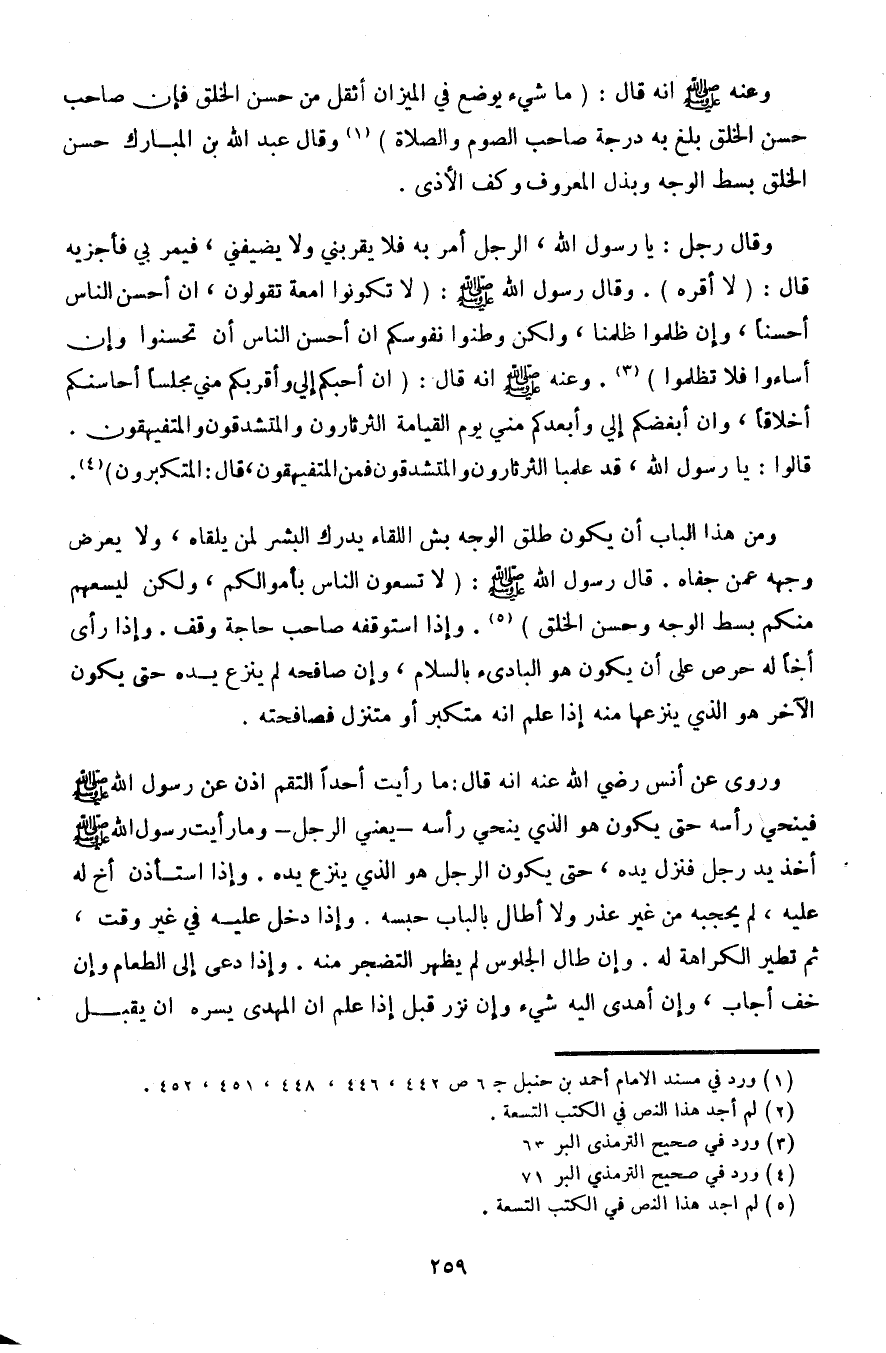 وعنه ﷺ انه قال : ( ما شيء يوضع في الميزان أثقل من حسن الخلق فإن صاحب
حسن الخلق بلغ به درجة صاحب الصوم والصلاة ) (١) وقال عبد الله بن المبارك حسن
الخلق بسط الوجه وبذل المعروف وكف الأذى .
وقال رجل : يا رسول الله ، الرجل أمر به فلا يقربني ولا يضيفني ، فيمر بي فأجزيه
قال : ( لا أقره ) . وقال رسول الله ﷺ : ( لا تكونوا امعة تقولون ، ان أحسن الناس
أحسنا ، وإن ظلموا ظلمنا ، ولكن وطنوا نفوسكم ان أحسن الناس أن تحسنوا وإن
أساءوا فلا تظلموا ) (٣) . وعنه ﷺ انه قال : ( ان أحبكم إلي وأقربكم مني مجلساً أحاسنكم
أخلاقاً ، وان أبغضكم إلي وأبعدكم مني يوم القيامة الثرثارون والمتشدقون والمتفيهقون .
قالوا : يا رسول الله ، قد علمنا الثرثارون والمتشدقون فمن المتفيهقون ، قال : المتكبرون ) (٤) .
ومن هذا الباب أن يكون طلق الوجه بش اللقاء يدرك البشر لمن يلقاه ، ولا يعرض
وجهه عمن جفاه . قال رسول الله ﷺ : ( لا تسعون الناس بأموالكم ، ولكن ليسعهم
منكم بسط الوجه وحسن الخلق ) (٥) . وإذا استوقفه صاحب حاجة وقف . وإذا رأى
أخاً له حرص على أن يكون هو البادىء بالسلام ، وإن صافحه لم ينزع يده حتى يكون
الآخر هو الذي ينزعها منه إذا علم انه متكبر أو متنزل فصافحته .
وروى عن أنس رضي الله عنه انه قال : ما رأيت أحداً التقم اذن عن رسول الله ﷺ
فينحي رأسه حتى يكون هو الذي ينحي رأسه – يعني الرجل – وما رأيت رسول الله ﷺ
أخذ يد رجل فنزل يده ، حتى يكون الرجل هو الذي ينزع يده . وإذا استأذن أخ له
عليه ، لم يحجبه من غير عذر ولا أطال بالباب حبسه . وإذا دخل عليه في غير وقت ،
ثم تطير الكراهة له . وإن طال الجلوس لم يظهر التضجر منه . وإذا دعى إلى الطعام وإن
خف أجاب ، وإن أهدى اليه شيء وإن نزر قبل إذا علم ان المهدى يسره ان يقبل
(١) ورد في مسند الامام أحمد بن حنبل جـ ٦ ص ٤٤٢ ، ٤٤٦ ، ٤٤٨ ، ٤٥١ ، ٤٥٢ .
(٢) لم أجد هذا النص في الكتب التسعة .
(٣) ورد في صحيح الترمذى البر ٦٣
(٤) ورد في صحيح الترمذي البر ٧١
(٥) لم اجد هذا النص في الكتب التسعة .
٢٥٩